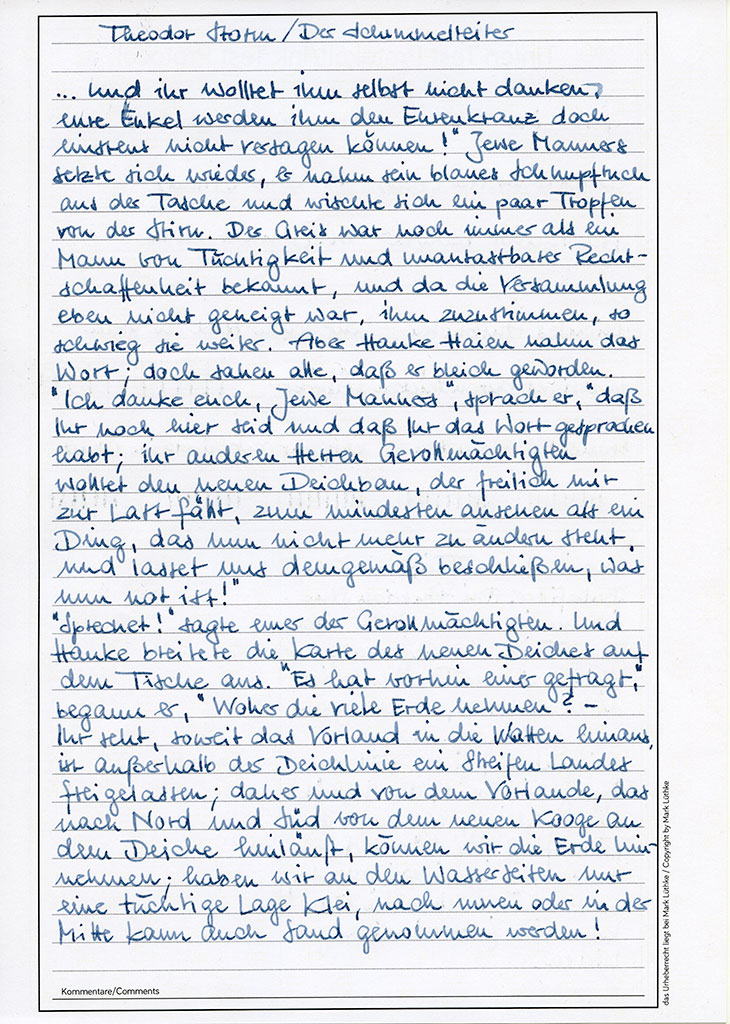 Theodor Storm / Der Schimmelreiter
... und ihr wolltet ihm selbst nicht danken,
eure Enkel werden ihm den Ehrenkranz doch
einstens nicht versagen können!" Jewe Manners
setzte sich wieder, er nahm sein blaues Schnupftuch
aus der Tasche und wischte sich ein paar Tropfen
von der Stirn. Der Greis war noch immer als ein
Mann von Tüchtigkeit und unantastbarer Recht-
schaffenheit bekannt, und da die Versammlung
eben nicht geneigt war, ihm zuzustimmen, so
schwieg sie weiter. Aber Hauke Haien nahm das
Wort; doch sahen alle, daß er bleich geworden.
"Ich danke euch, Jewe Manners", sprach er, "daß
Ihr noch hier seid und daß Ihr das Wort gesprochen
habt; ihr anderen Herren Gevollmächtigten
wollet den neuen Deichbau, der freilich mir
zur Last fällt, zum mindesten ansehen als ein
Ding, das nun nicht mehr zu ändern steht,
und lasset uns demgemäß beschließen, was
nun not ist!"
"Sprechet!" sagte einer der Gevollmächtigten. Und
Hauke breitete die Karte des neuen Deiches auf
dem Tische aus. "Es hat vorhin einer gefragt,"
begann er, "Woher die viele Erde nehmen? –
Ihr seht, soweit das Vorland in die Watten hinaus,
ist außerhalb der Deichlinie ein Streifen Landes
freigelassen; daher und von dem Vorlande, das
nach Nord und Süd von dem neuen Kooge an
dem Deiche hinläuft, können wir die Erde hin-
nehmen; haben wir an den Wasserseiten nur
eine tüchtige Lage Klei, nach innen oder in der
Mitte kann auch Sand genommen werden!
Kommentare/Comments
das Urheberrecht liegt bei Mark Lüthke / Copyright by Mark Lüthke